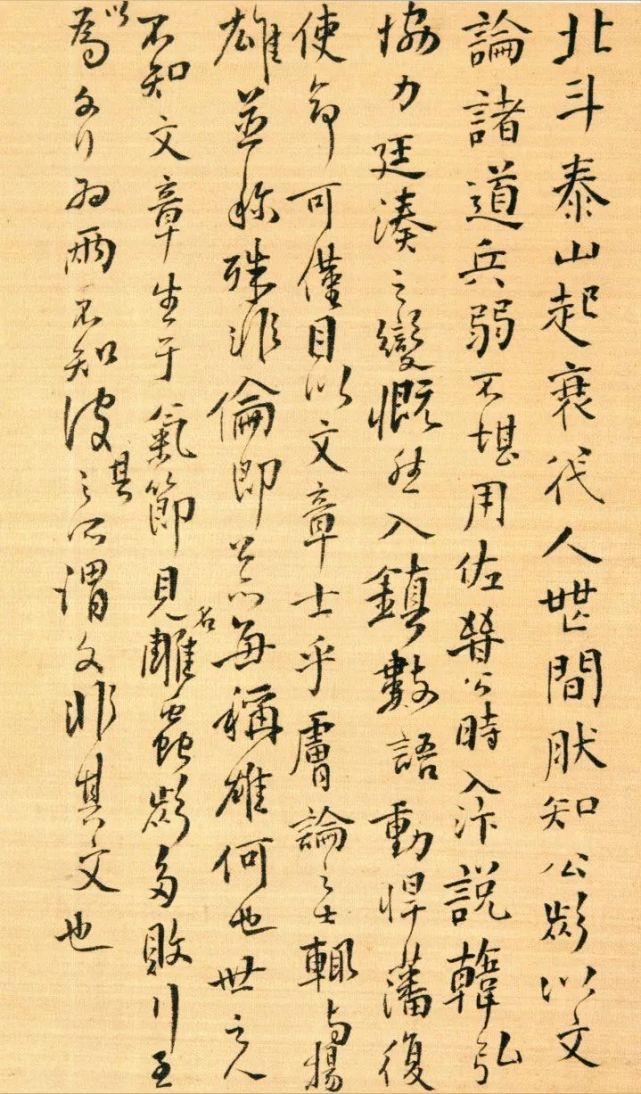 北斗泰山起衰代人世間肰知公類以文
論諸道兵弱不堪用佐晉公時入汴說韓弘
協力廷湊之變慨然入鎮數語動悍藩復
使命可僅目以文章士乎膚論之士輒与揚
雄並称殊非倫即公亦每稱雄何也世之
不知文章生于氣節見名雕蟲類多敗行至
以為文行為兩不知彼其之所謂文非其文也